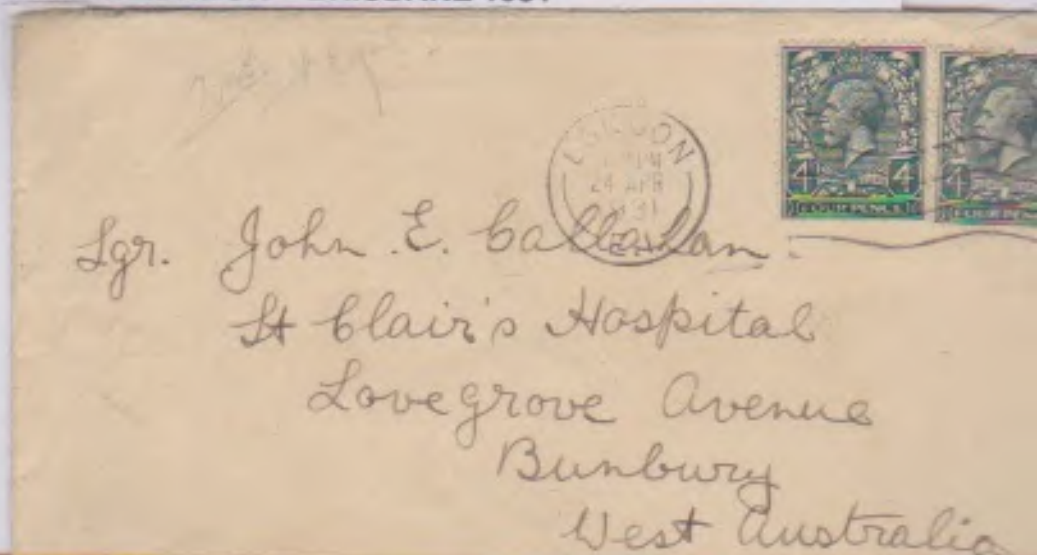 LONDON
24 APR
1931
4 4
FOUR PENCE
4
FOUR PENC
Sgr. John E. Callahan.
St Clair's Hospital
Lovegrove Avenue
Bunbury
West Australia